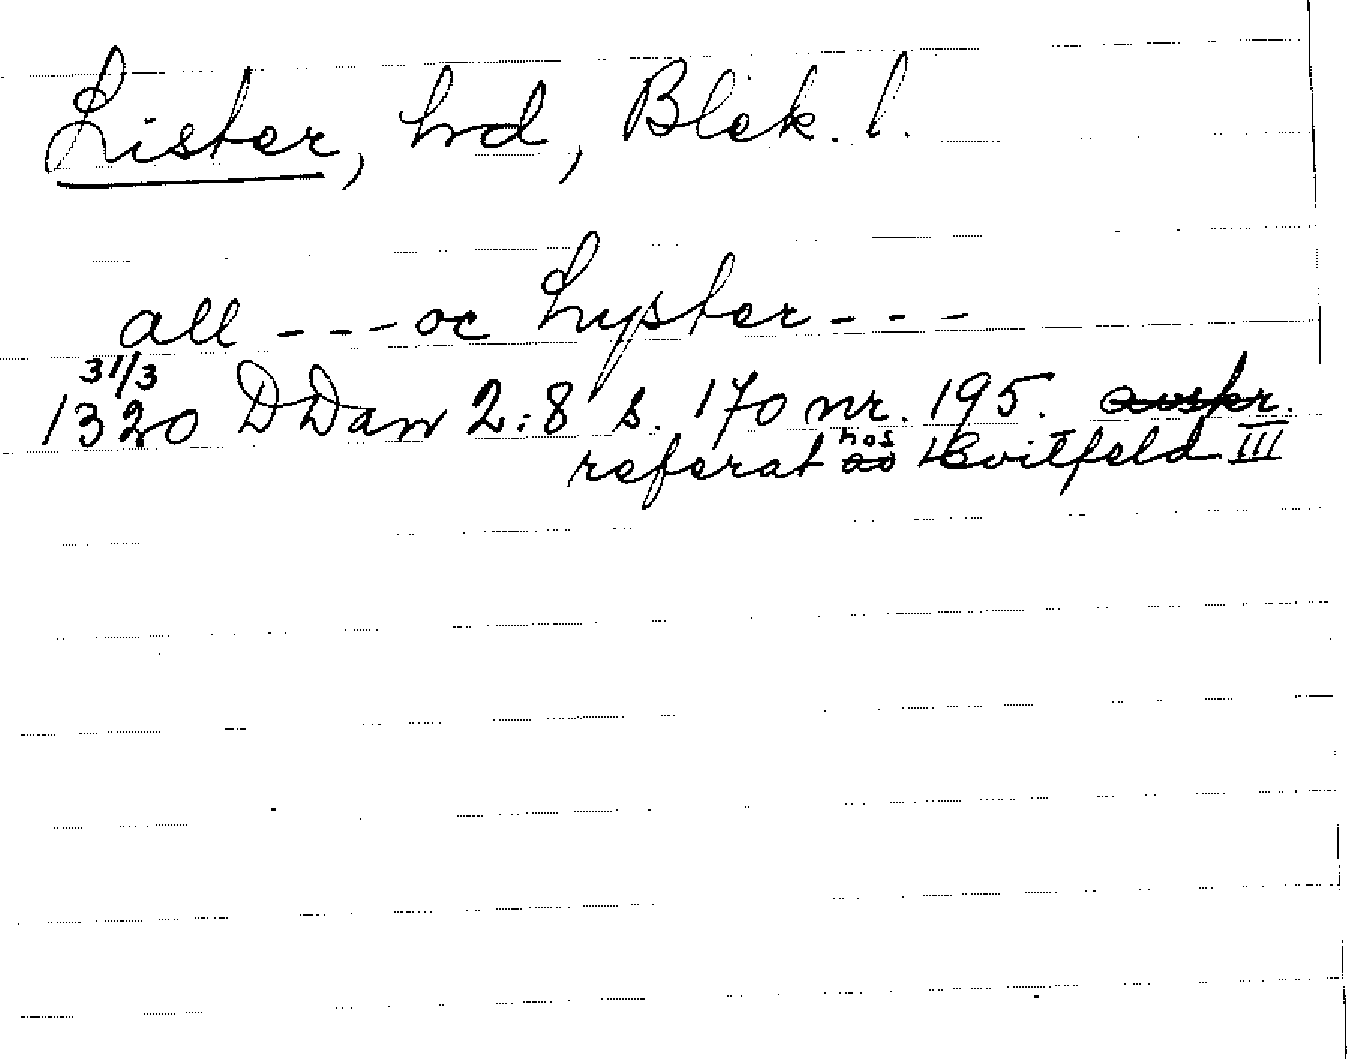 Lister, hrd, Blek. l.
all --- oc Lyster ---
31/3
1320 DDan 2:8 s. 170 nr. 195. avskr.
referat hos av Hvitfeld III